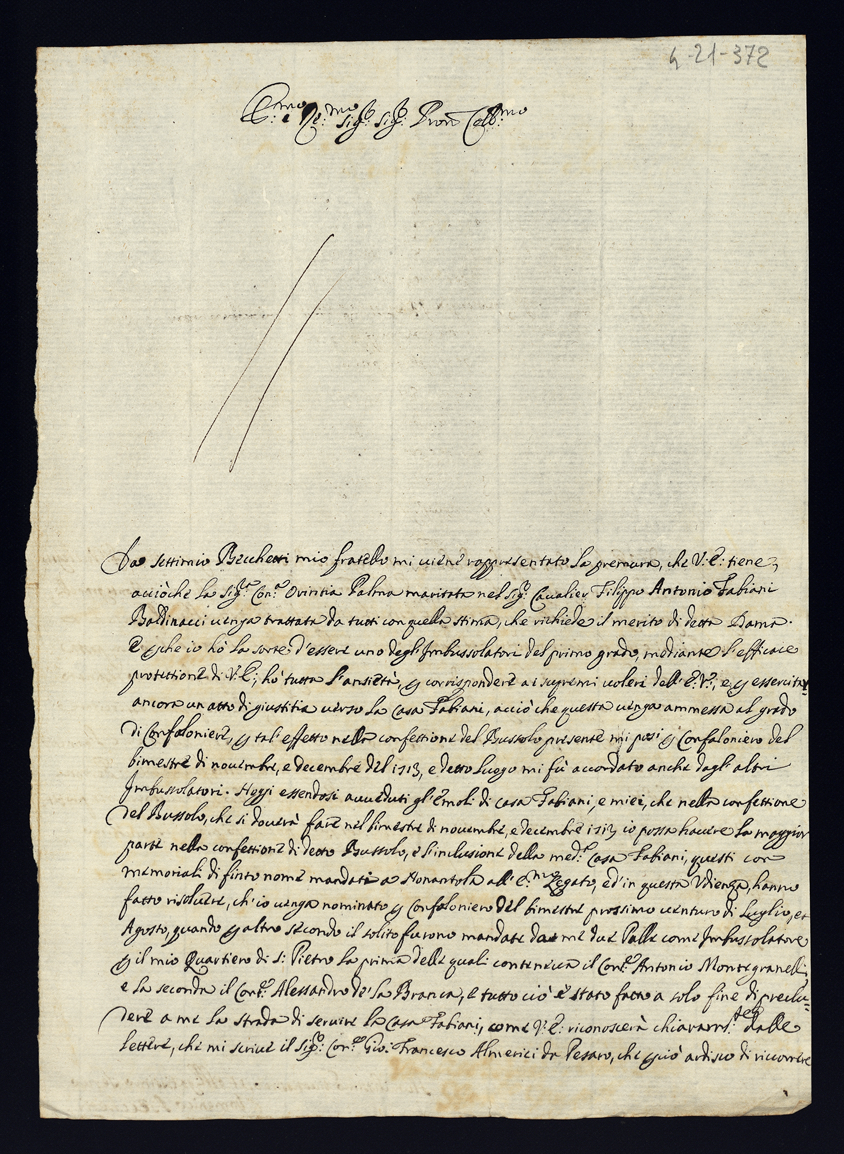 4-21-372
Em.mo e Re.mo Sig.r Sig.r Pron Coll.mo
Da Settimio Becchetti mio fratello mi viene rappresentato la premura, che V: E: tiene,
acciòche la Sig.ra Con.a Orintia Palma maritata nel Sig.r Cavalier Filippo Antonio Fabiani
Baldinacci venga trattata da tutti con quella stima, che richiede il merito di detta Dama.
E p che io hò la sorte d'essere uno degl'Imbussolatori del primo grado, mediante l'efficace
protettione di V: E:, hò tutta l'ansietà, p corrispondere ai supremi voleri dell'E: V:, e p essercitar
ancora un atto di giustitia verso la Casa Fabiani, acciò che questa venga ammessa al grado
di Confaloniere, p tal effetto nella confettione del Bussolo presente mi posi p Confaloniero del
bimestre di novembre, e decembre del 1713, e detto luogo mi fù accordato anche dagl'altri
Imbussolatori. Hoggi essendosi avveduti gl'Emoli di casa Fabiani, e miei, che nella confettione
del Bussolo, che si doverà fare nel bimestre di novembre, e decembre 1713 io possa havere la maggior
parte nella confettione di detto Bussolo, e l'inclusione della med.a Casa Fabiani, questi con
memoriali di finto nome mandati a Nonantola all'E.mo Legato, ed'in questa Udienza, hanno
fatto risolvere, ch'io venga nominato p Confaloniero del bimestre prossimo venturo di Luglio, et
Agosto, quando p altro secondo il solito furono mandate da me due Palle come Imbussolatore
p il mio Quartiero di S: Pietro la prima delle quali conteneva il Con.te Antonio Montegranelli,
e la seconda il Con.te Alessandro de' la Branca, e tutto ciò è stato fatto a solo fine di preclu-
dere a me la strada di servire la Casa Fabiani, come V: E: riconoscerà chiaram.te dalle
lettere, che mi scrive il Sig.r Con.te Gio: Francesco Almerici da Pesaro, che p ciò ardisco di ricorrere